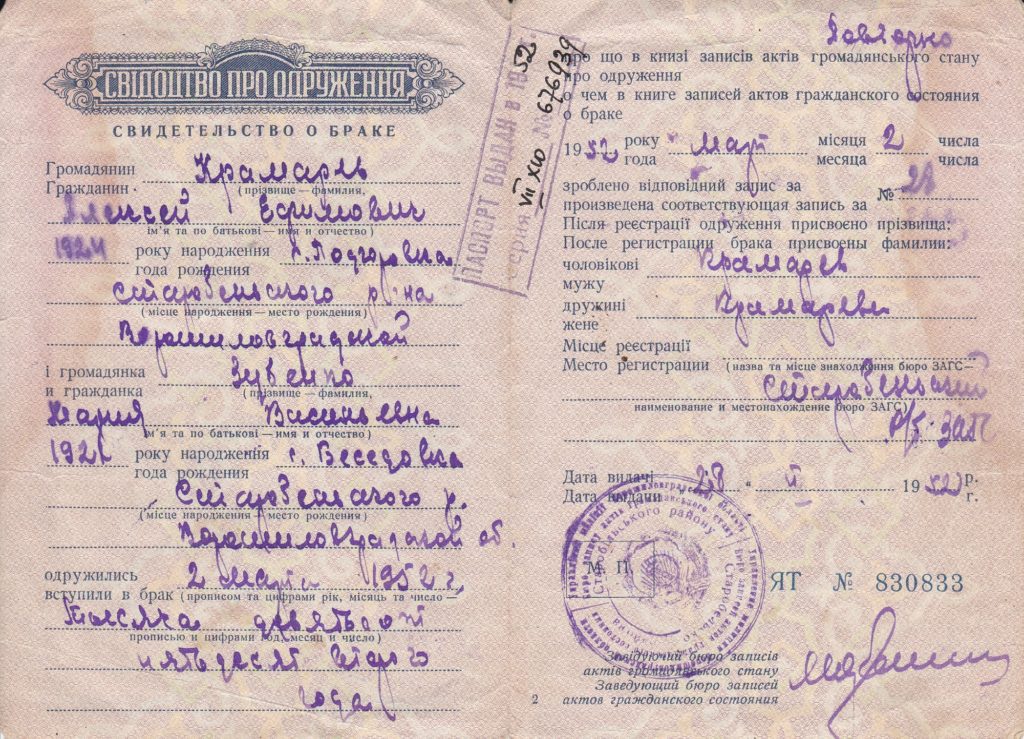 СВІДОЦТВО ПРО ОДРУЖЕННЯ
СВИДЕТЕЛЬСТВО О БРАКЕ
Громадянин
Гражданин Крамарев
(прізвище — фамилия,
Алексей Ефимович
ім'я та по батькові — имя и отчество)
1924 року народження с. Подгоровка
года рождения
Старобельского р-на
(місце народження — место рождения)
Ворошиловградской
і громадянка Зувенко
и гражданка (прізвище — фамилия,
Мария Васильевна
ім'я та по батькові — имя и отчество)
192 року народження с. Беседовка
года рождения
Старобельского р.
(місце народження — место рождения)
Ворошиловградской об.
одружились 2 марта 1952 г.
вступили в брак (прописом та цифрами рік, місяць та число —
Тысяча девятьсот
прописью и цифрами год, месяц и число)
пятьдесят второго
года
ПАСПОРТ ВЫДАН в 1952 г.
серия VII ХЮ № 676939
Повторно
про що в книзі записів актів громадянського стану
про одруження
о чем в книге записей актов гражданского состояния
о браке
1952 року март місяця 2 числа
года месяца числа
зроблено відповідний запис за № 28
произведена соответствующая запись за
Після реєстрації одруження присвоєно прізвища:
После регистрации брака присвоены фамилии:
чоловікові Крамарев
мужу
дружині Крамарева
жене
Місце реєстрації
Место регистрации (назва та місце знаходження бюро ЗАГС—
Старобельский
наименование и местонахождение бюро ЗАГС)
р/б. ЗАГС
Дата видачі 28 " II 1952 р.
Дата выдачи г.
М. П.
Старобільського району
ЯТ № 830833
Завідуючий бюро записів
актів громадянського стану
Заведующий бюро записей
актов гражданского состояния
2